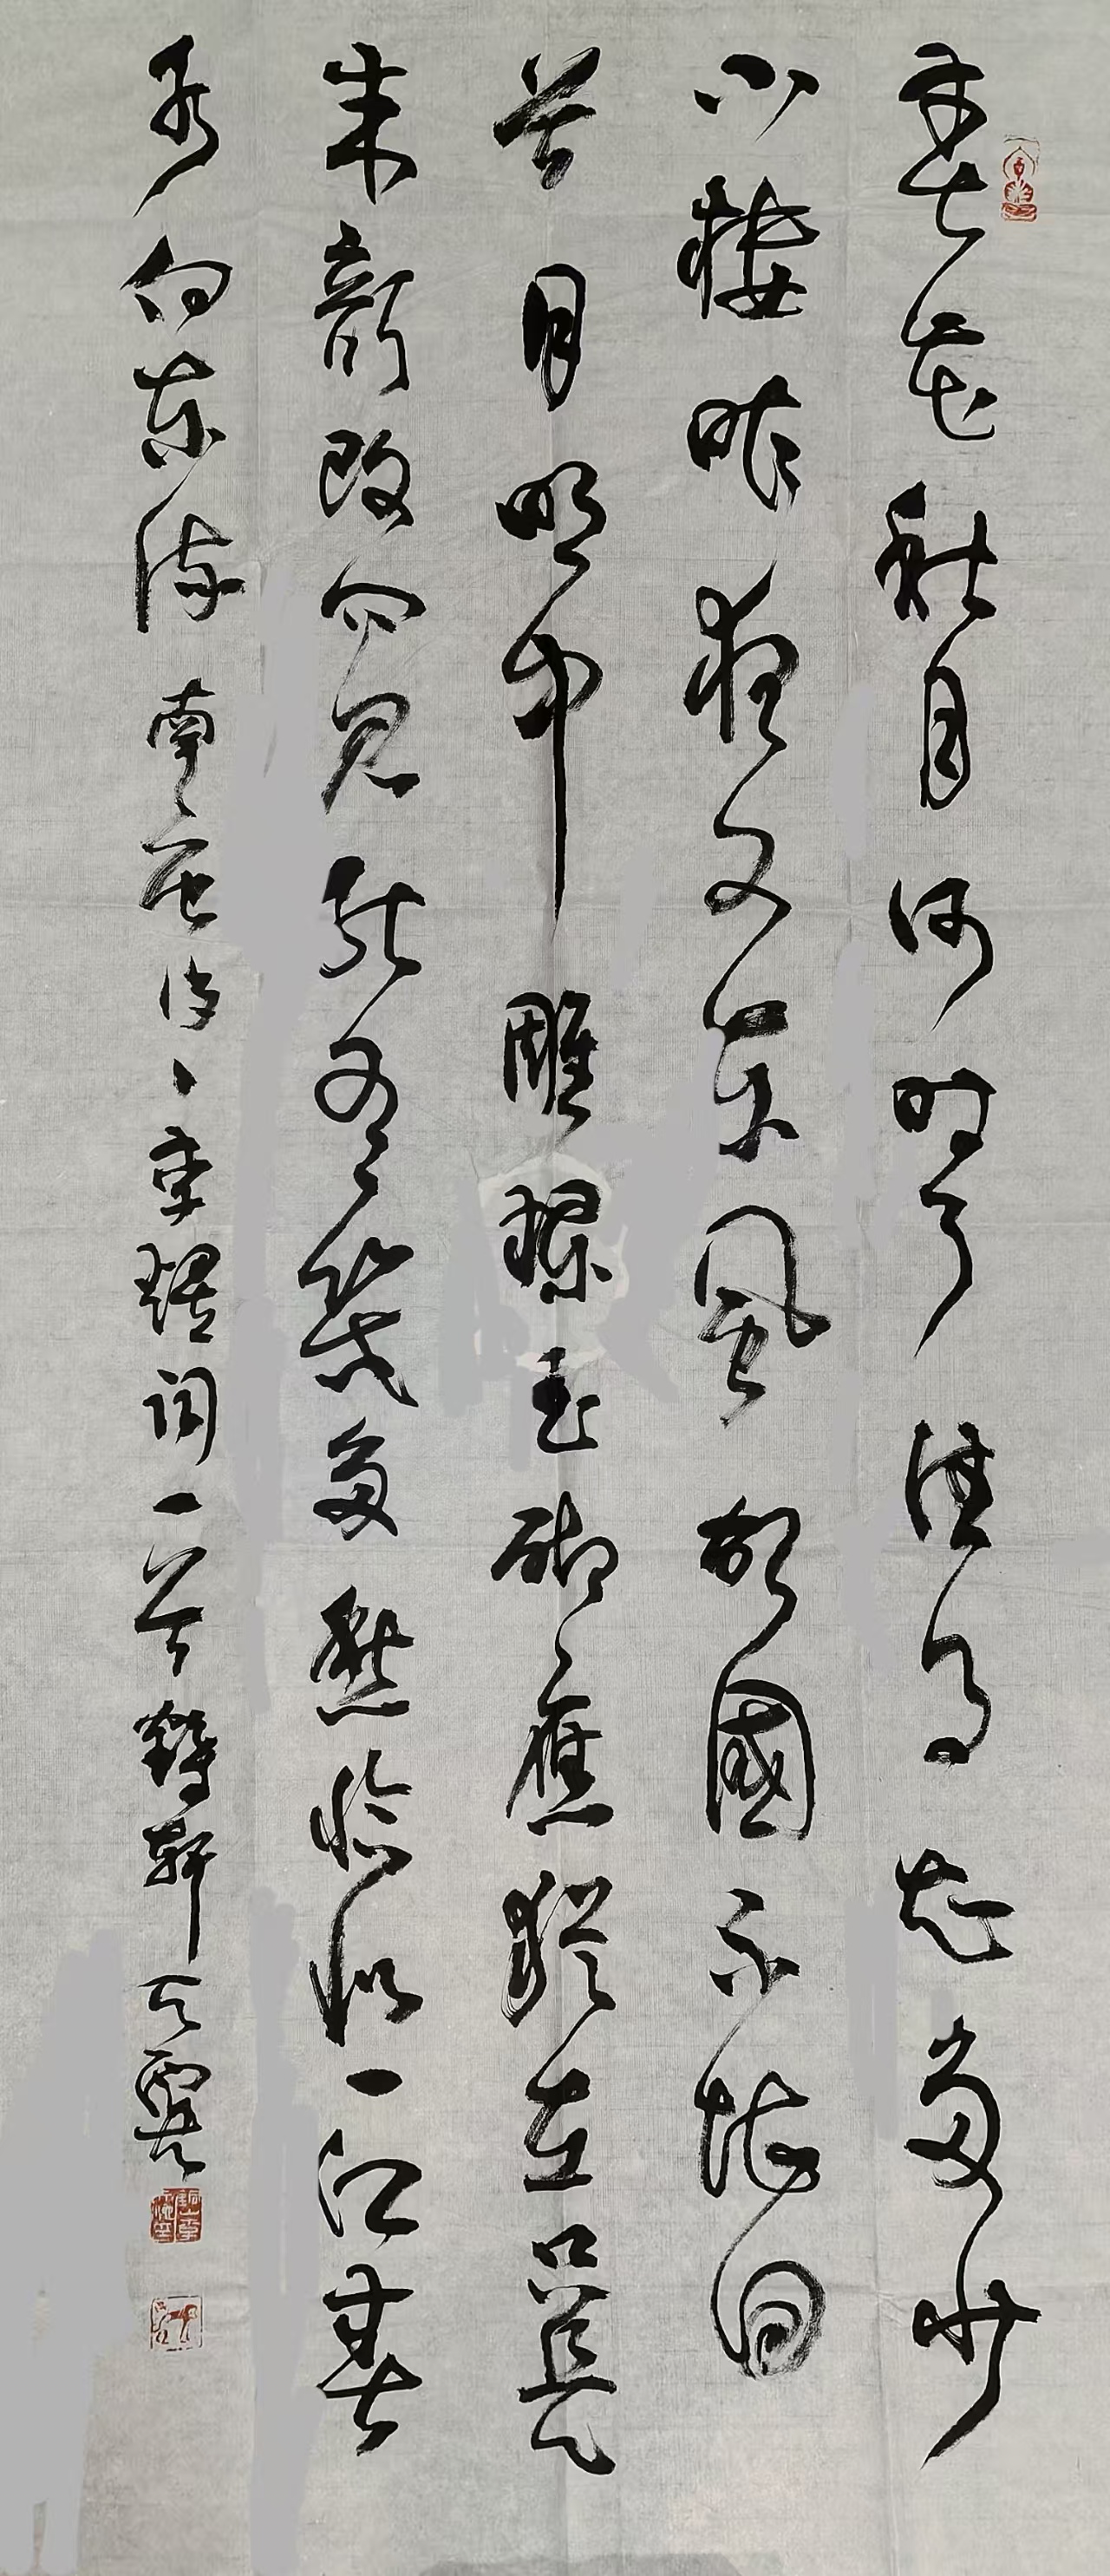 春花秋月何時了往事知多少
小樓昨夜又東風故國不堪回
首月明中雕欄玉砌應猶在只是
朱顏改問君能有幾多愁恰似一江春
水向東流南唐後主李煜詞一首鶴軒